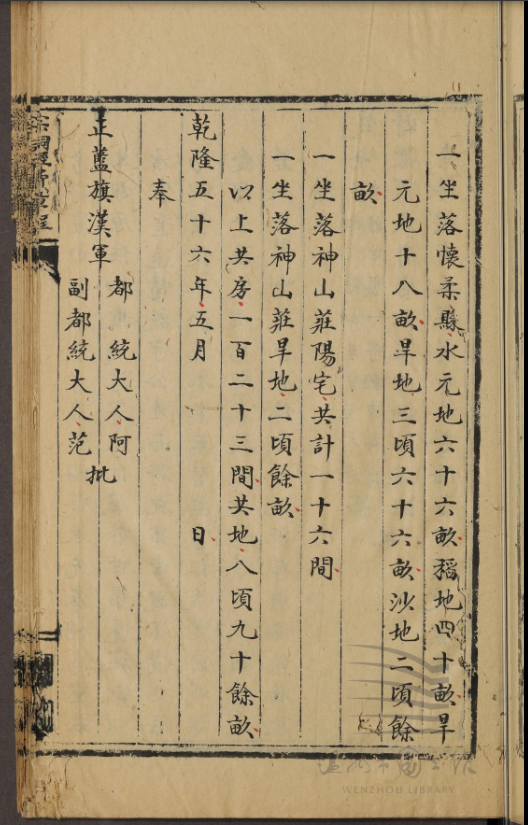 一坐落懷柔縣水元地六十六畝稻地四十畝旱
元地十八畝旱地三頃六十六畝沙地二頃餘
畝
一坐落神山莊陽宅共計一十六間
一坐落神山莊旱地二頃餘畝
以上共房一百二十三間共地八頃九十餘畝
乾隆五十六年五月 日
奉
正藍旗漢軍
都統大人阿
副都統大人范
批
WENZHOU LIBRARY